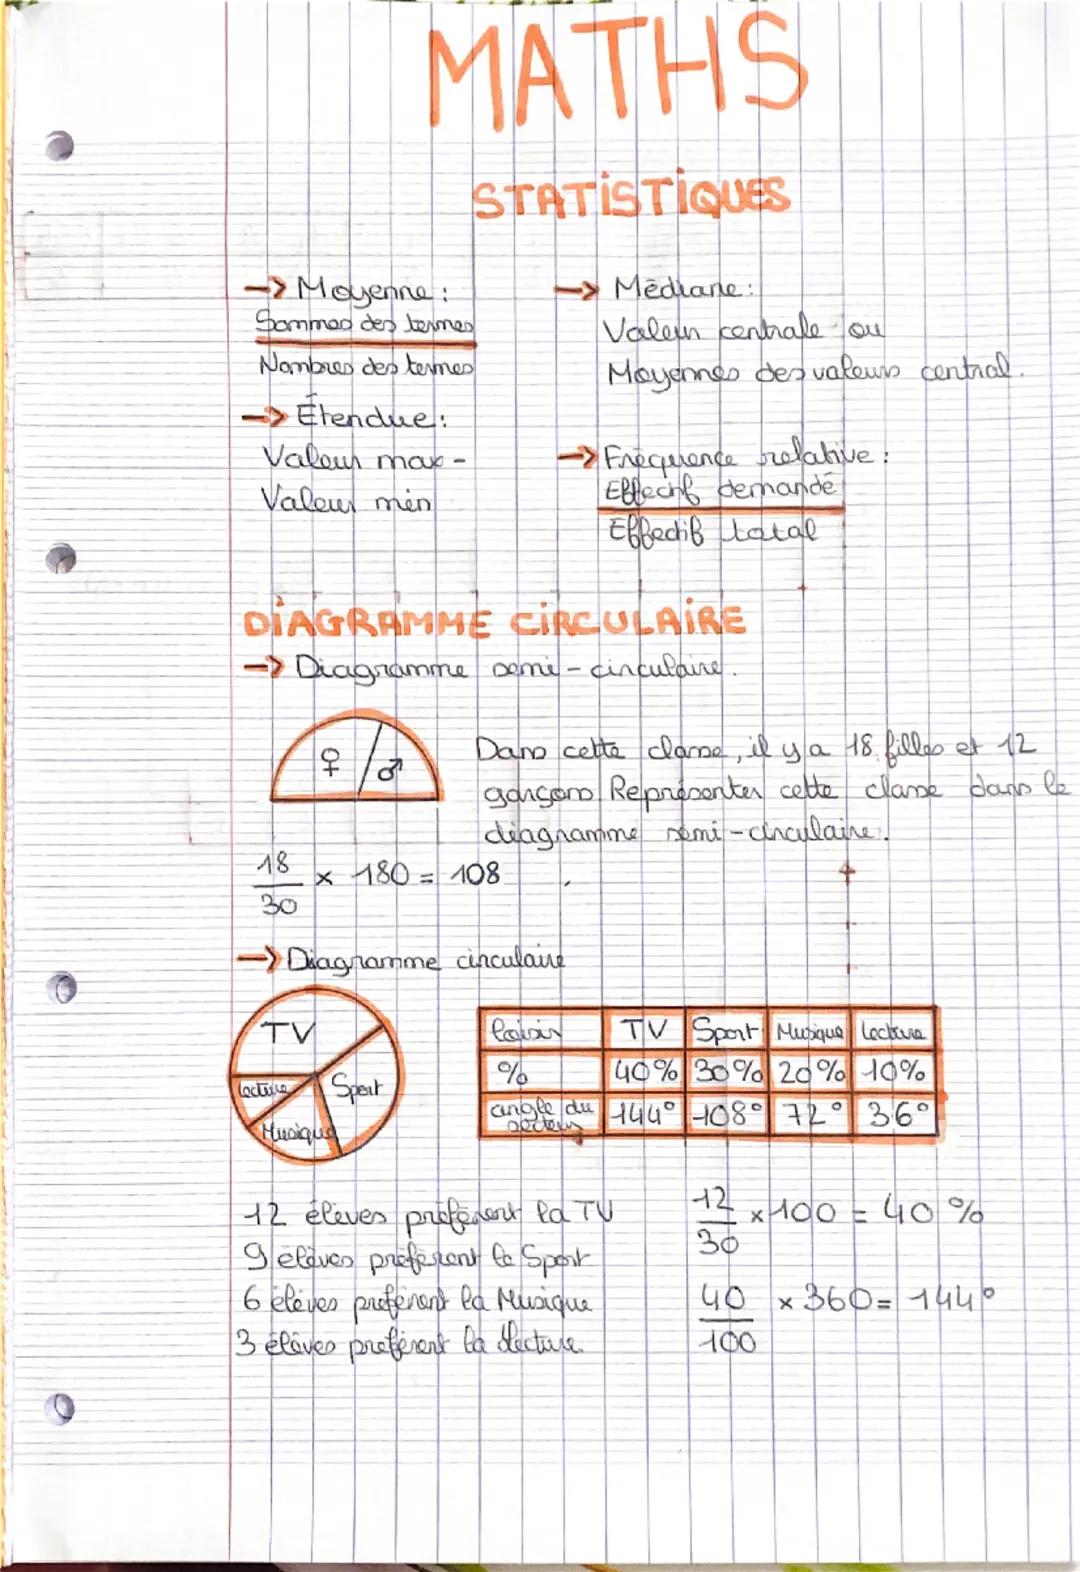 MATHS
STATISTIQUES
-> Moyenne :
Sommes des termes
Nombres des termes
-> Étendue :
Valeur max -
Valeur min
-> Médiane :
Valeur centrale ou
Moyennes des valeurs central.
-> Fréquence relative :
Effectif demandé
Effectif total
DIAGRAMME CIRCULAIRE
-> Diagramme semi-circulaire.
♀ / ♂
Dans cette classe, il y a 18 filles et 12
garçons Représenter cette classe dans le
diagramme semi-circulaire.
18
30
× 180 = 108
-> Diagramme circulaire
TV
Lecture
Sport
Musique
loisir TV Sport Musique Lecture
% 40% 30% 20% 10%
angle du secteur 144° 108° 72° 36°
12 élèves préfèrent la TV
9 élèves préfèrent le Sport
6 élèves préfèrent la Musique
3 élèves préfèrent la lecture.
12
30
× 100 = 40 %
40
100
× 360 = 144°